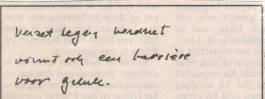 verzet tegen verdriet
vormt ook een barrière
voor geluk.